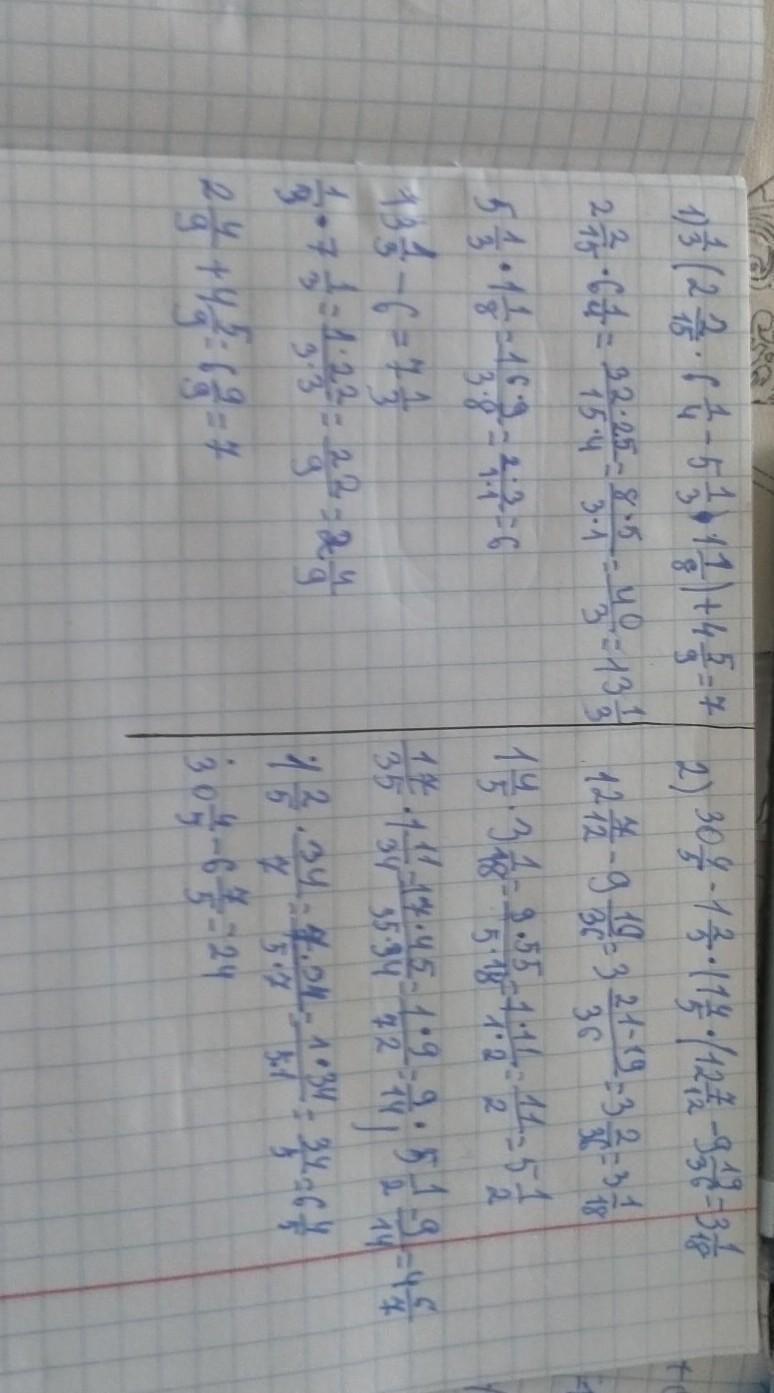 1) 1/3 (2 2/15 · 6 1/4 - 5 1/3 · 1 1/8) + 4 5/9 = 7
2 2/15 · 6 1/4 = 32·25/15·4 = 8·5/3·1 = 40/3 = 13 1/3
5 1/3 · 1 1/8 = 16·9/3·8 = 2·3/1·1 = 6
13 1/3 - 6 = 7 1/3
1/3 · 7 1/3 = 1·22/3·3 = 22/9 = 2 4/9
2 4/9 + 4 5/9 = 6 9/9 = 7
2) 30 4/5 - 1 2/5 · (1 4/5 · (12 7/12 - 9 19/36 = 3 1/18
12 7/12 - 9 19/36 = 3 21-19/36 = 3 2/36 = 3 1/18
1 4/5 · 3 1/18 = 9·55/5·18 = 1·11/1·2 = 11/2 = 5 1/2
17/35 · 1 11/34 = 17·45/35·34 = 1·9/7·2 = 9/14; 5 1/2 - 9/14 = 4 6/7
1 2/5 · 34/7 = 7·34/5·7 = 1·34/5·1 = 34/5 = 6 4/5
30 4/5 - 6 4/5 = 24